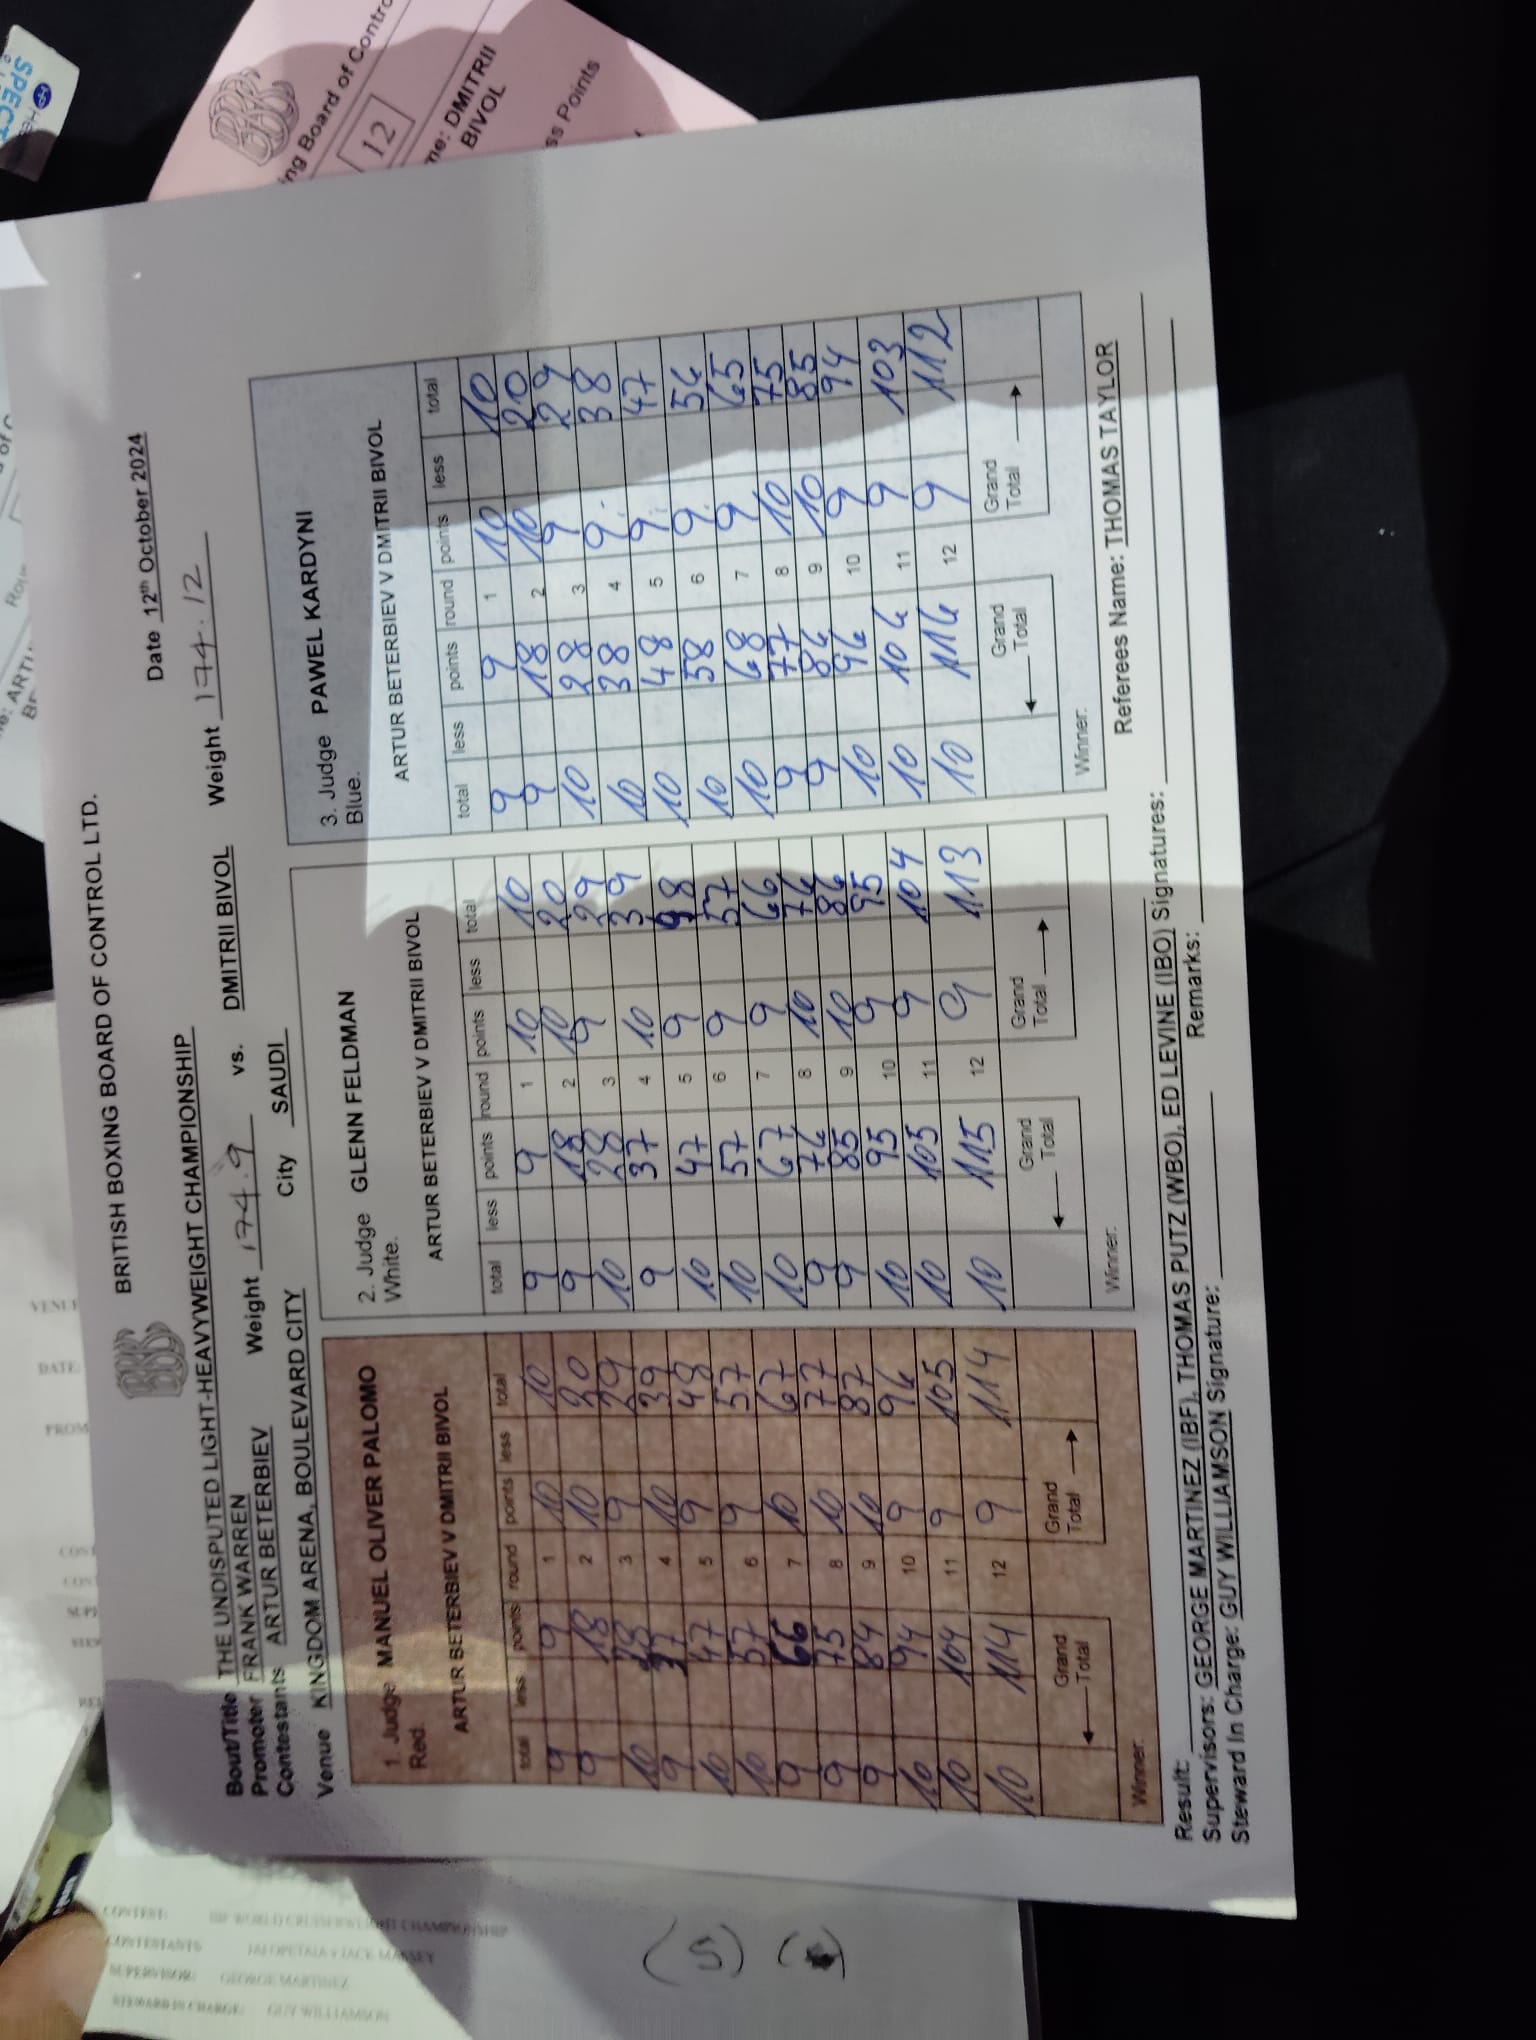 BRITISH BOXING BOARD OF CONTROL LTD.
Date 12th October 2024
Bout/Title THE UNDISPUTED LIGHT-HEAVYWEIGHT CHAMPIONSHIP
Promoter FRANK WARREN
Contestants ARTUR BETERBIEV Weight 174.9 vs. DMITRII BIVOL Weight 174.12
Venue KINGDOM ARENA, BOULEVARD CITY City SAUDI
1. Judge MANUEL OLIVER PALOMO
Red.
ARTUR BETERBIEV V DMITRII BIVOL
total less points round points less total
9 9 1 10 10
9 18 2 10 20
10 28 3 9 29
9 37 4 10 39
10 47 5 9 48
10 57 6 9 57
9 66 7 10 67
9 75 8 10 77
9 84 9 10 87
10 94 10 9 96
10 104 11 9 105
10 114 12 9 114
Grand Total Grand Total
Winner:
2. Judge GLENN FELDMAN
White.
ARTUR BETERBIEV V DMITRII BIVOL
total less points round points less total
9 9 1 10 10
9 18 2 10 20
10 28 3 9 29
9 37 4 10 39
10 47 5 9 48
10 57 6 9 57
10 67 7 9 66
9 76 8 10 76
9 85 9 10 86
10 95 10 9 95
10 105 11 9 104
10 115 12 9 113
Grand Total Grand Total
Winner:
3. Judge PAWEL KARDYNI
Blue.
ARTUR BETERBIEV V DMITRII BIVOL
total less points round points less total
9 9 1 10 10
9 18 2 10 20
10 28 3 9 29
10 38 4 9 38
10 48 5 9 47
10 58 6 9 56
10 68 7 9 65
9 77 8 10 75
9 86 9 10 85
10 96 10 9 94
10 106 11 9 103
10 116 12 9 112
Grand Total Grand Total
Winner:
Result: Referees Name: THOMAS TAYLOR
Supervisors: GEORGE MARTINEZ (IBF), THOMAS PUTZ (WBO), ED LEVINE (IBO) Signatures:
Steward In Charge: GUY WILLIAMSON Signature: Remarks:
ing Board of Contro
12
me: DMITRII
BIVOL
ss Points
SPECT
VENUE
DATE
PROM
CONTEST: IBF WORLD CRUISERWEIGHT CHAMPIONSHIP
CONTESTANTS JAI OPETAIA v JACK MASSEY
SUPERVISOR: GEORGE MARTINEZ
STEWARD IN CHARGE: GUY WILLIAMSON
(S)